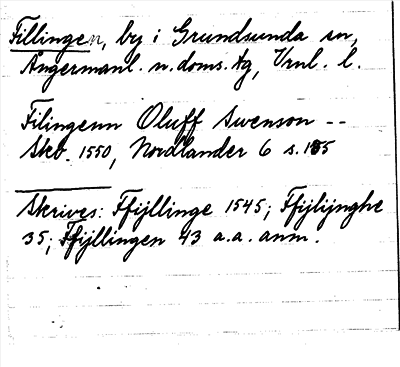 Fillingen, by i Grundsunda sn,
Ångermanl. n. doms. tg, Vrnl. l.
Filingenn Oluff Swenson --
Skb. 1550, Nordlander 6 s. 185
Skrives: Ffijllinge 1545; Ffijlijnghe
35; Ffijllingen 43 a.a. anm.